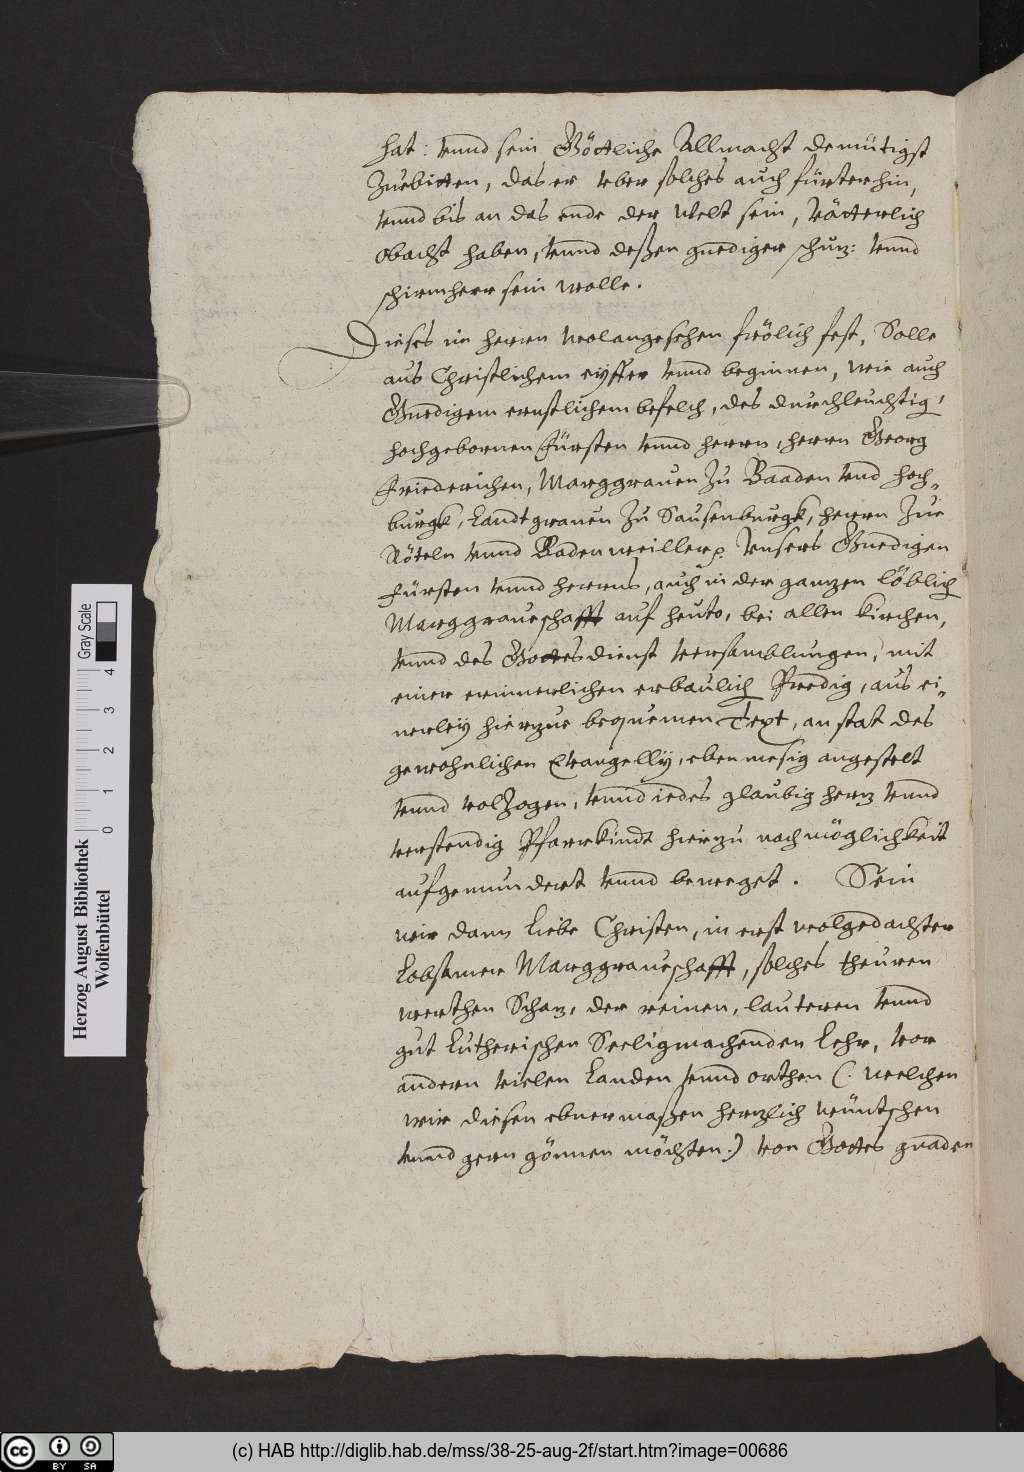 hat: vnnd sein Göttliche Allmacht demütigst
Zuebitten, das er vber solches auch fürterhin,
vnnd bis an das ende der Welt sein, Vätterlich
obacht haben, vnnd deßen gnediger schuz: vnnd
schirmherr sein wolle.
Dieses im herren wolangesehen frölich fest, Solle
aus Christlichem eyffer vnnd beginnen, wie auch
Gnedigem ernstlichem befelch, des durchleuchtig,
hochgebornen Fürsten vnnd herrn, herrn Georg
Friederichen, Marggrauen Zu Baaden vnd Hoch-
burgk, Landtgrauen Zu Sausenburgk, herrn Zue
Röteln vnnd Badenweiller p. Vnsers Gnedigen
Fürsten vnnd herrns, auch in der ganzen löblich
Marggraueschafft auf heuto, bei allen kirchen,
vnnd des Gottesdienst versamblungen, mit
einer erinnerlichen erbaulich Predig, aus ei-
nerley hierzue bequemen Text, an stat des
gewohnlichen Evangelly, ebenmesig angestelt
vnnd volzogen, vnnd iedes glaubig herz vnnd
verstendig Pfarrkindt hierzu nach möglichkeit
aufgemundert vnnd beweget. Sein
wir dann Liebe Christen, in erst wolgedachter
Lobsamer Marggraueschafft, solches theuren
werthen Schaz, der reinen, lauteren vnnd
gut Lutherischen Seeligmachenden Lehr, vor
andern vielen Landen vnnd orthen (. welchen
wir diesen ebnermaßen herzlich wüntschen
vnnd gern gönnen möchten.) von Gottes gnaden
Herzog August Bibliothek
Wolfenbüttel
0 1 2 3 4
Gray Scale
cc BY SA
(c) HAB http://diglib.hab.de/mss/38-25-aug-2f/start.htm?image=00686